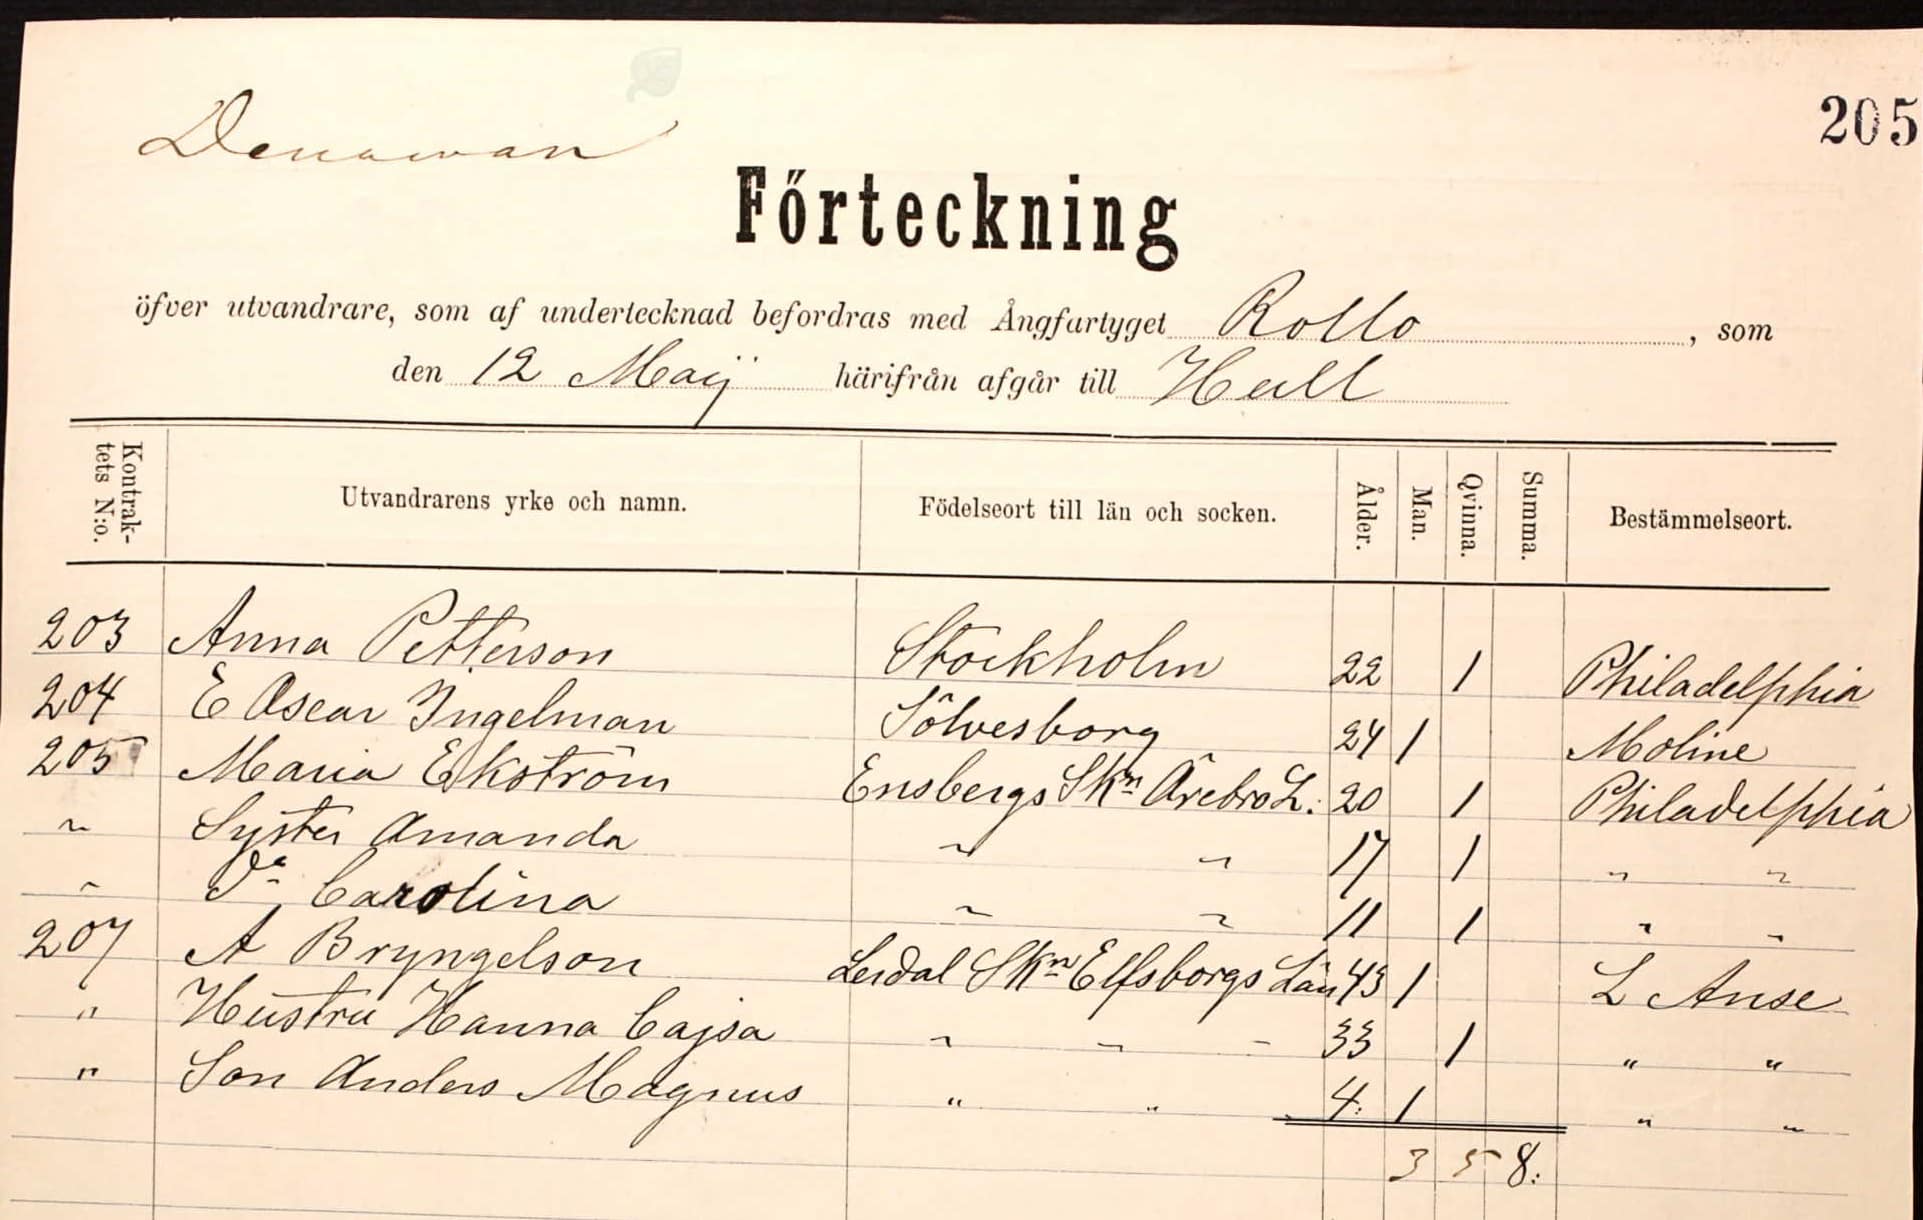 205
Denawan
Főrteckning
öfver utvandrare, som af undertecknad befordras med Ångfartyget Rollo, som
den 12 Maij härifrån afgår till Hull
Kontrak-tets N:o. Utvandrarens yrke och namn. Födelseort till län och socken. Ålder. Man. Qvinna. Summa. Bestämmelseort.
203 Anna Petterson Stockholm 22 1 Philadelphia
204 E Oscar Ingelman Sölvesborg 24 1 Moline
205 Maria Ekström Ensbergs Skn Örebro L. 20 1 Philadelphia
" Syster Amanda " " 17 1 " "
" Da Carolina " " 11 1 " "
207 A Bryngelson Lerdal Skn Elfsborgs Län 43 1 L Anse
" Hustru Hanna Cajsa " " " 33 1 " "
" Son Anders Magnus " " 4: 1 " "
3 5 8: